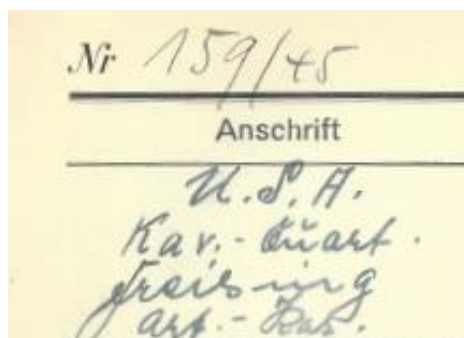 Nr 159/45
Anschrift
U.S.A.
Kav.-Quart.
Freising
Art.-Kas.